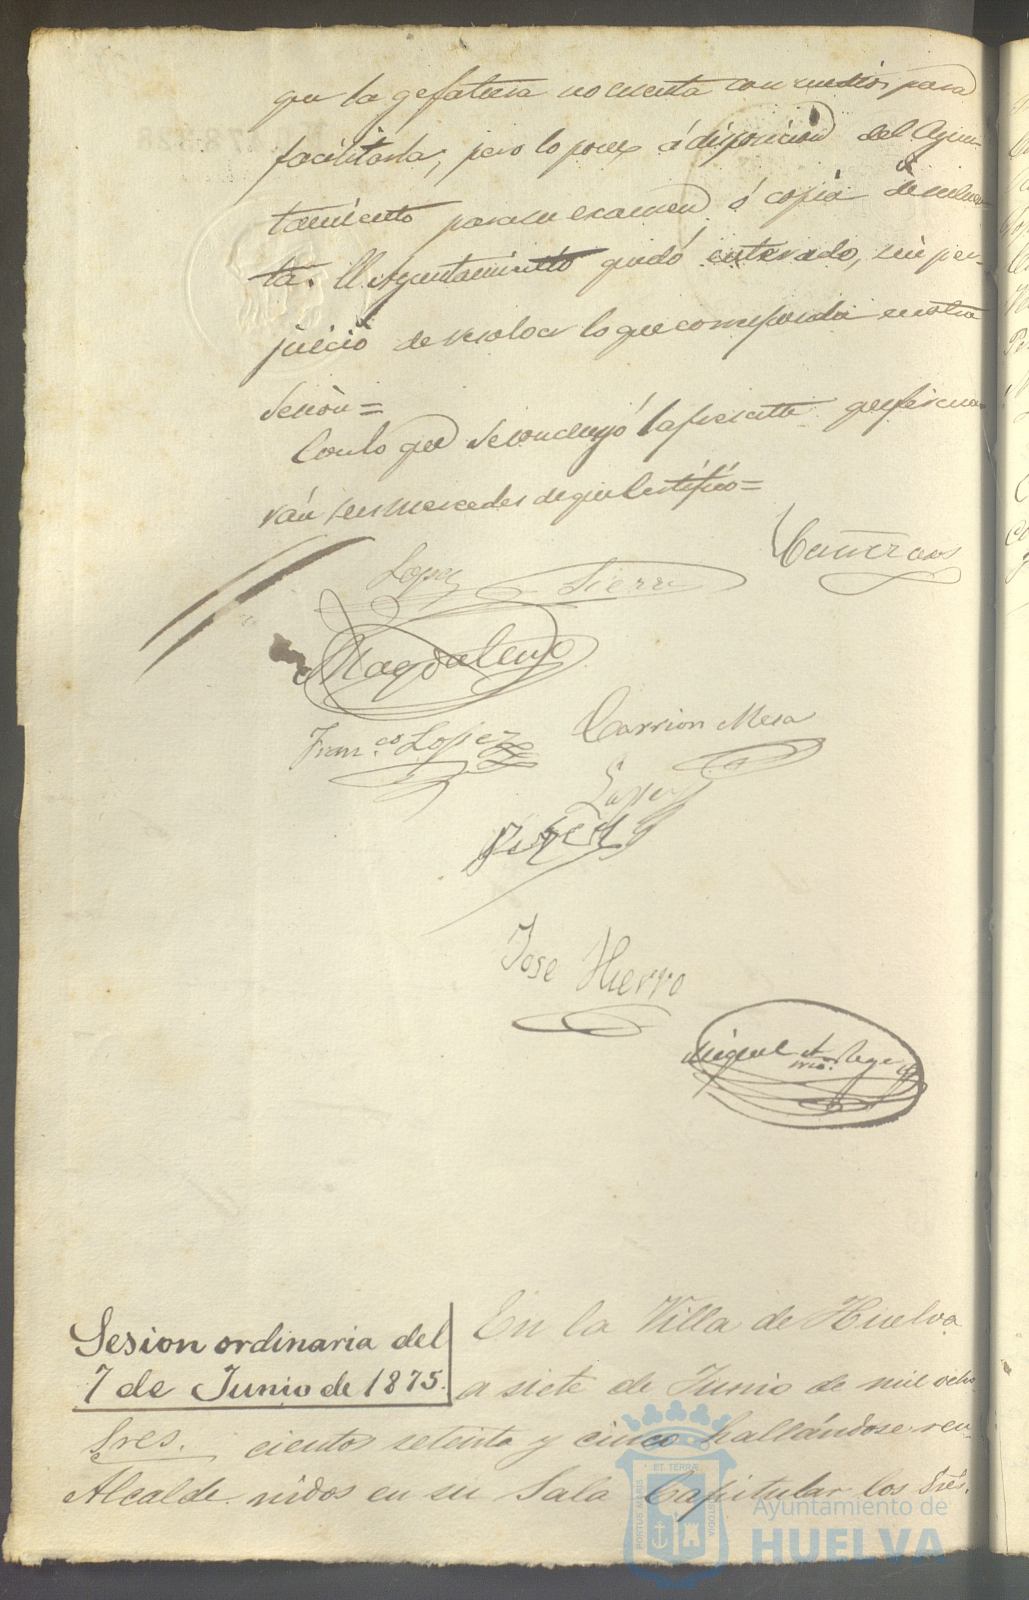 que la gefatura no cuenta con medios para
facilitarla, pero lo pone á disposicion del Ayun-
tamiento para su examen ó copia de su cuen-
ta. El Ayuntamiento quedó enterado, sin per-
juicio de resolver lo que corresponda en otra
Sesion=
Con lo que se concluyó la presente que firma-
rán sus mercedes de que Certifico=
Lopez Sierra
Magdaleno
Fran.co Lopez Carrion Mesa
Jose Hierro
Sesion ordinaria del
7 de Junio de 1875.
En la Villa de Huelva
a siete de Junio de mil ocho
Sres. cientos setenta y cinco hallándose reu-
Alcalde. nidos en su Sala Capitular los Sres.
PORTUS MARIS ET TERRÆ CUSTODIA
Ayuntamiento de
HUELVA